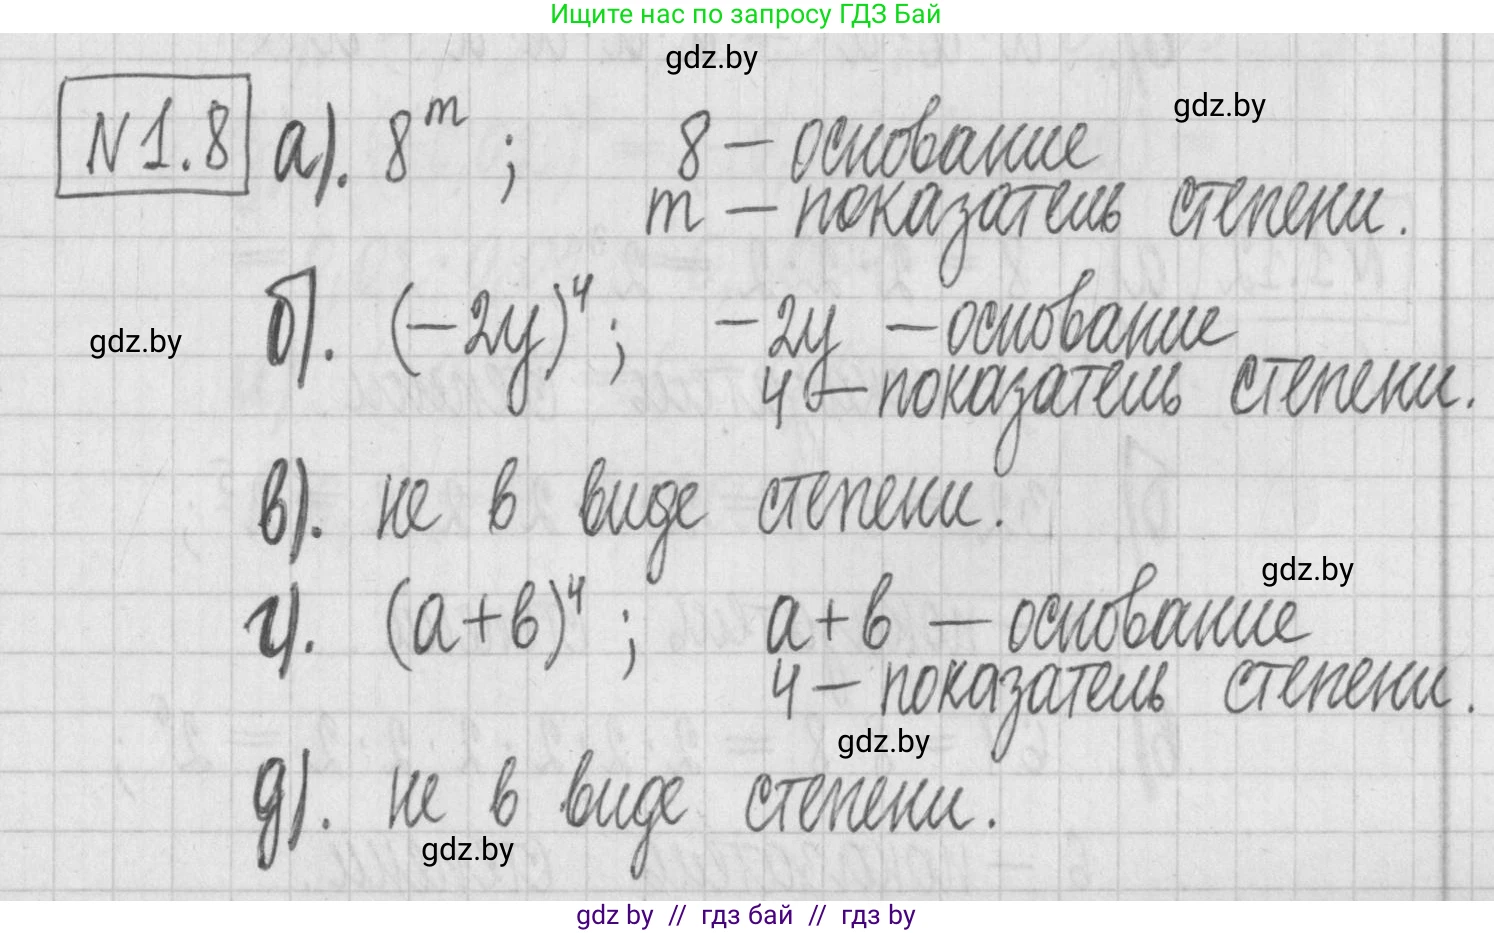 Ищите нас по запросу ГДЗ Бай
gdz.by
gdz.by
N 1.8 а). 8^m ; 8 – основание
m – показатель степени.
gdz.by
б). (–2y)^4 ; –2y – основание
4 – показатель степени.
в). не в виде степени.
gdz.by
г). (а+в)^4 ; а+в – основание
4 – показатель степени.
gdz.by
д). не в виде степени.
gdz.by
gdz by // гдз бай // гдз by